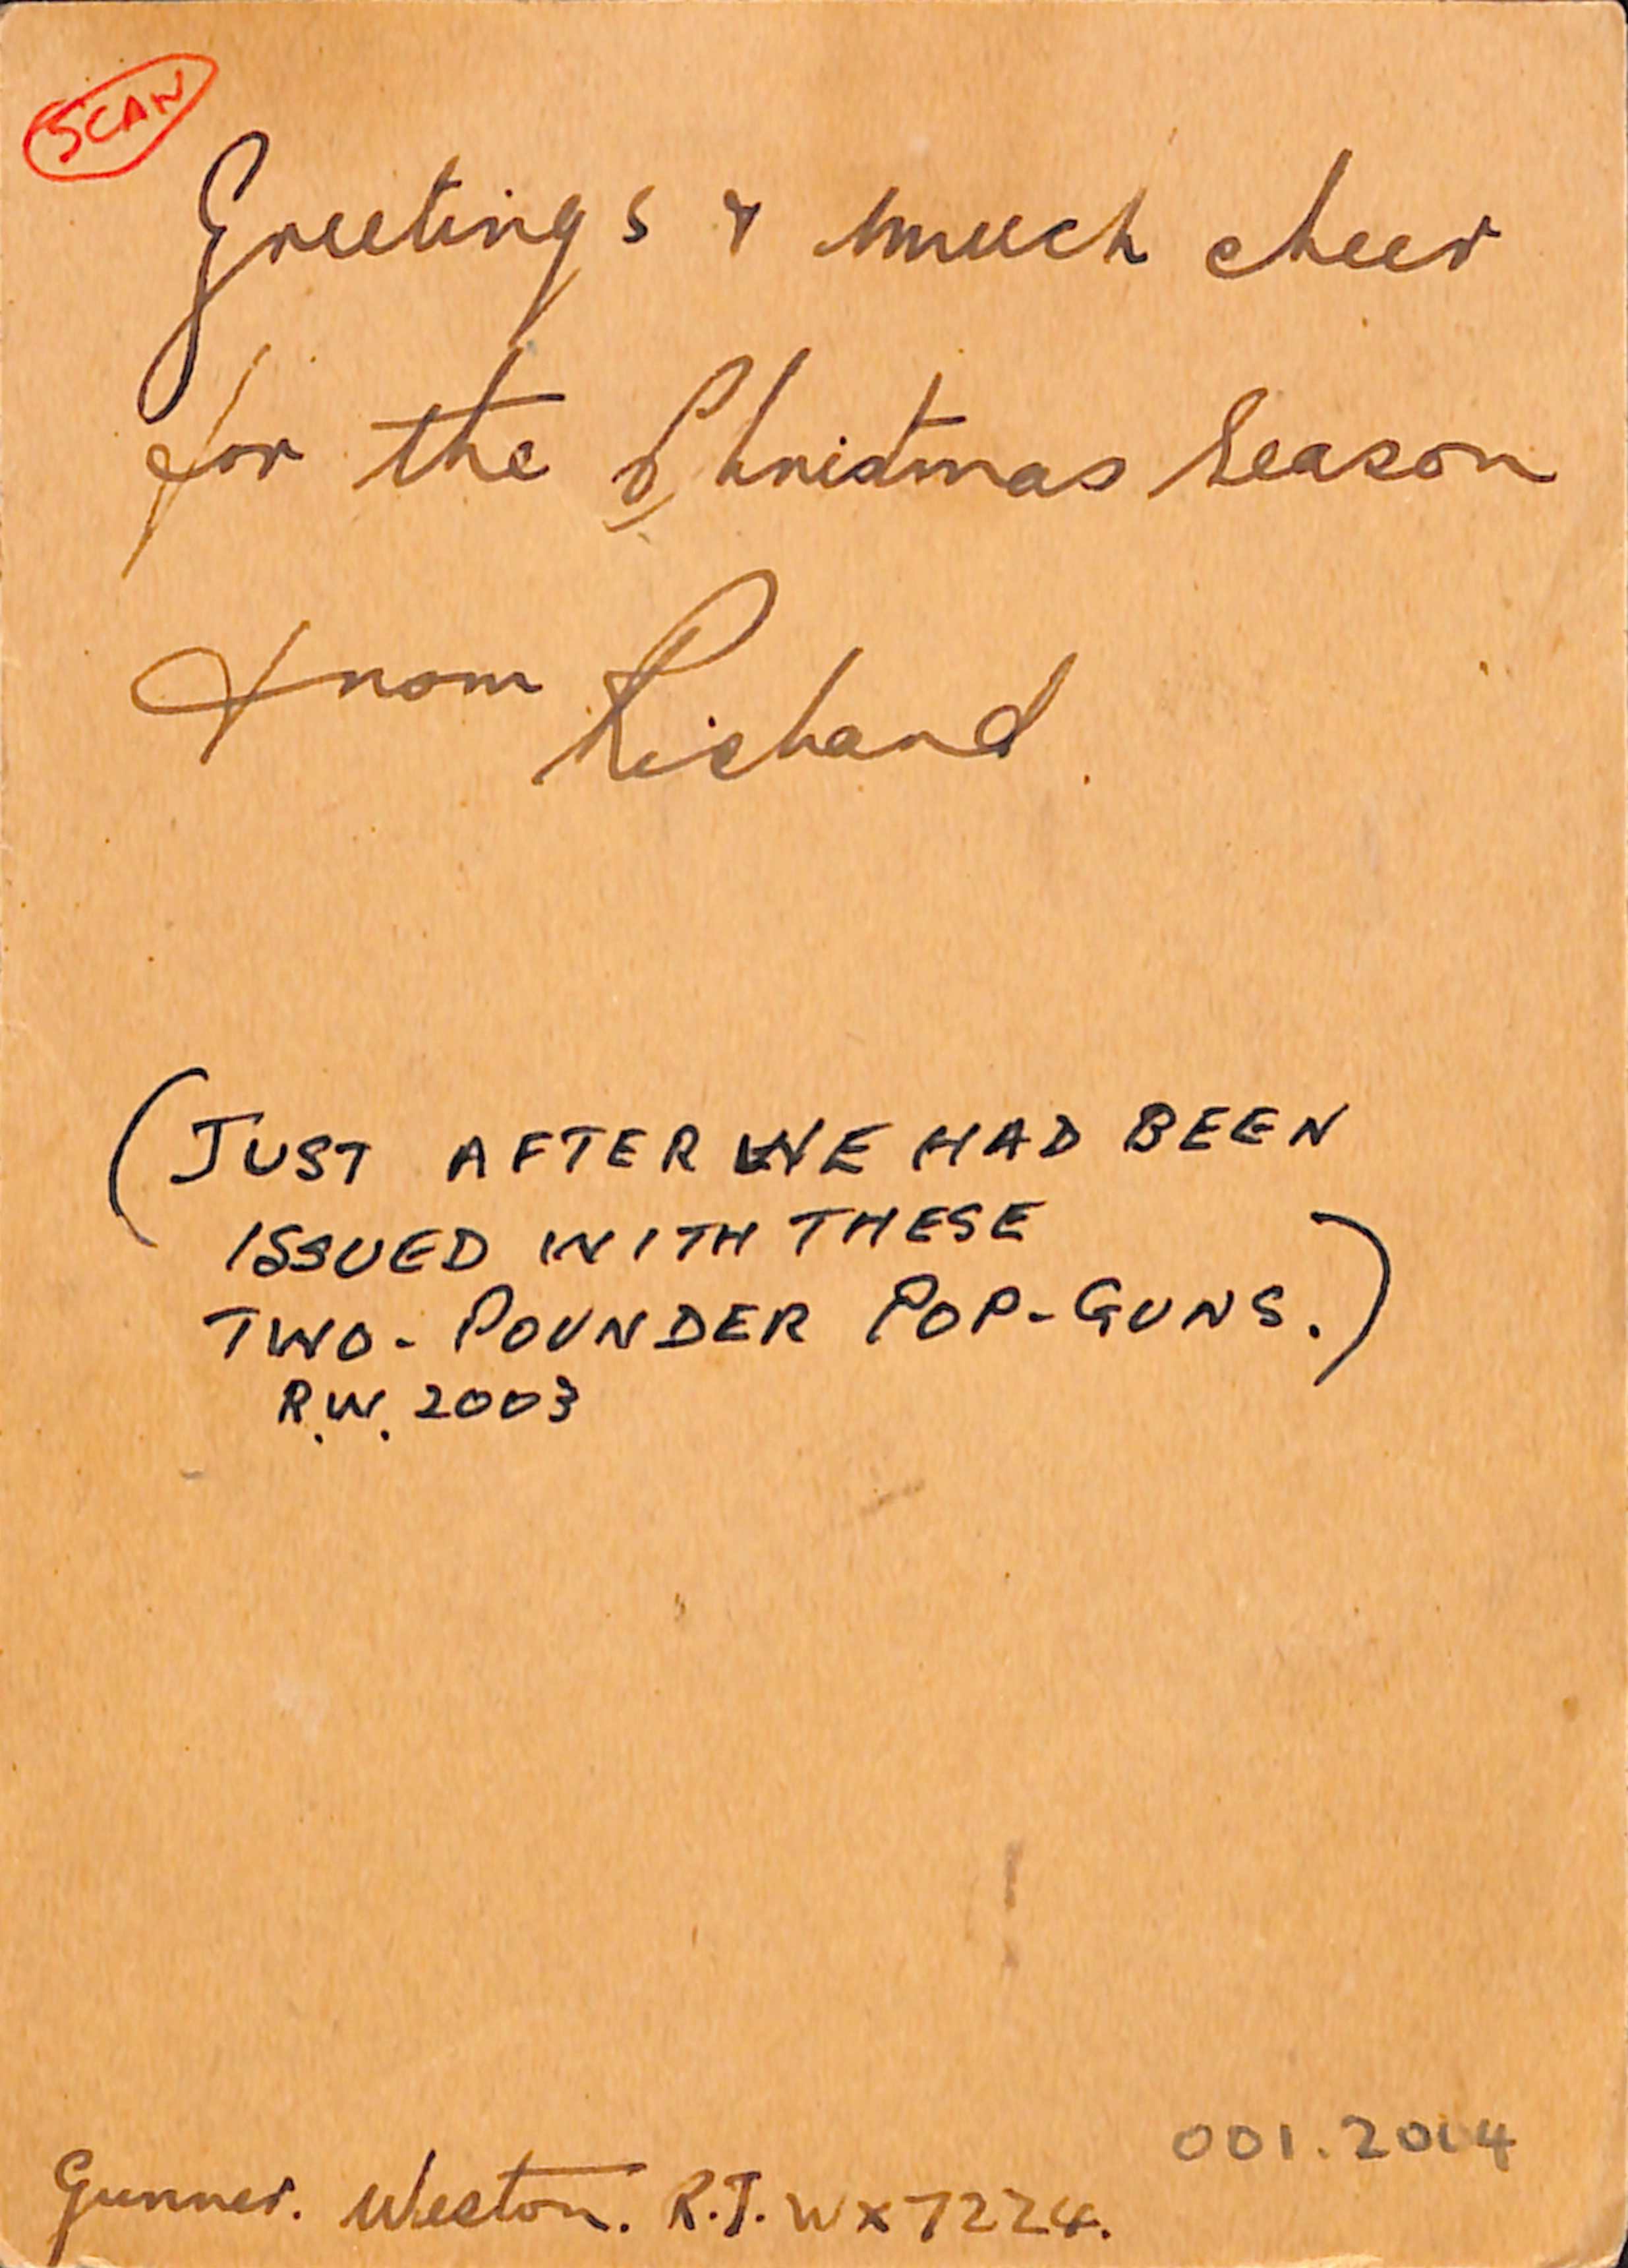 SCAN
Greetings & much cheer
for the Christmas Season
from Richard.
(JUST AFTER WE HAD BEEN
ISSUED WITH THESE
TWO-POUNDER POP-GUNS.)
R.W. 2003
001.2014
Gunner. Weston. R.J. WX7224.